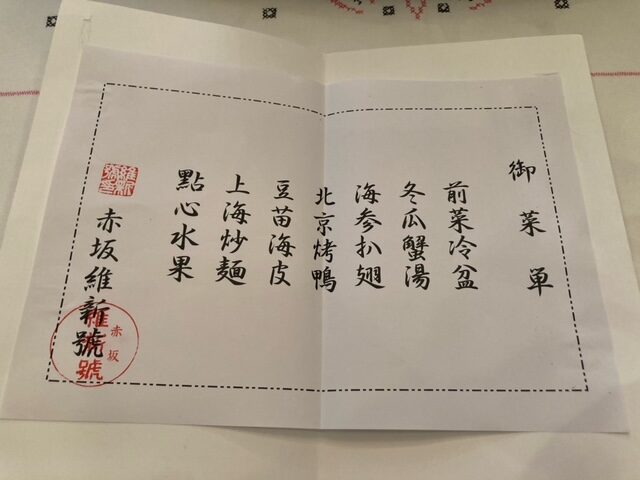 御菜単
前菜冷盆
冬瓜蟹湯
海参扒翅
北京烤鴨
豆苗海皮
上海炒麵
點心水果
赤坂維新號
維新號
赤坂
維新號